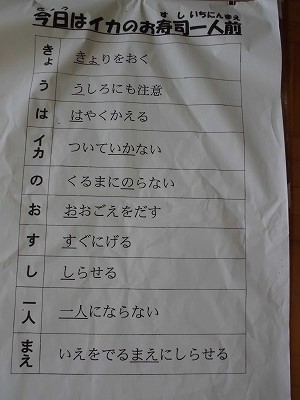 今日はイカのお寿司一人前
きょ きょりをおく
う うしろにも注意
は はやくかえる
イカ ついていかない
の くるまにのらない
お おおごえをだす
す すぐにげる
し しらせる
一人 一人にならない
まえ いえをでるまえにしらせる